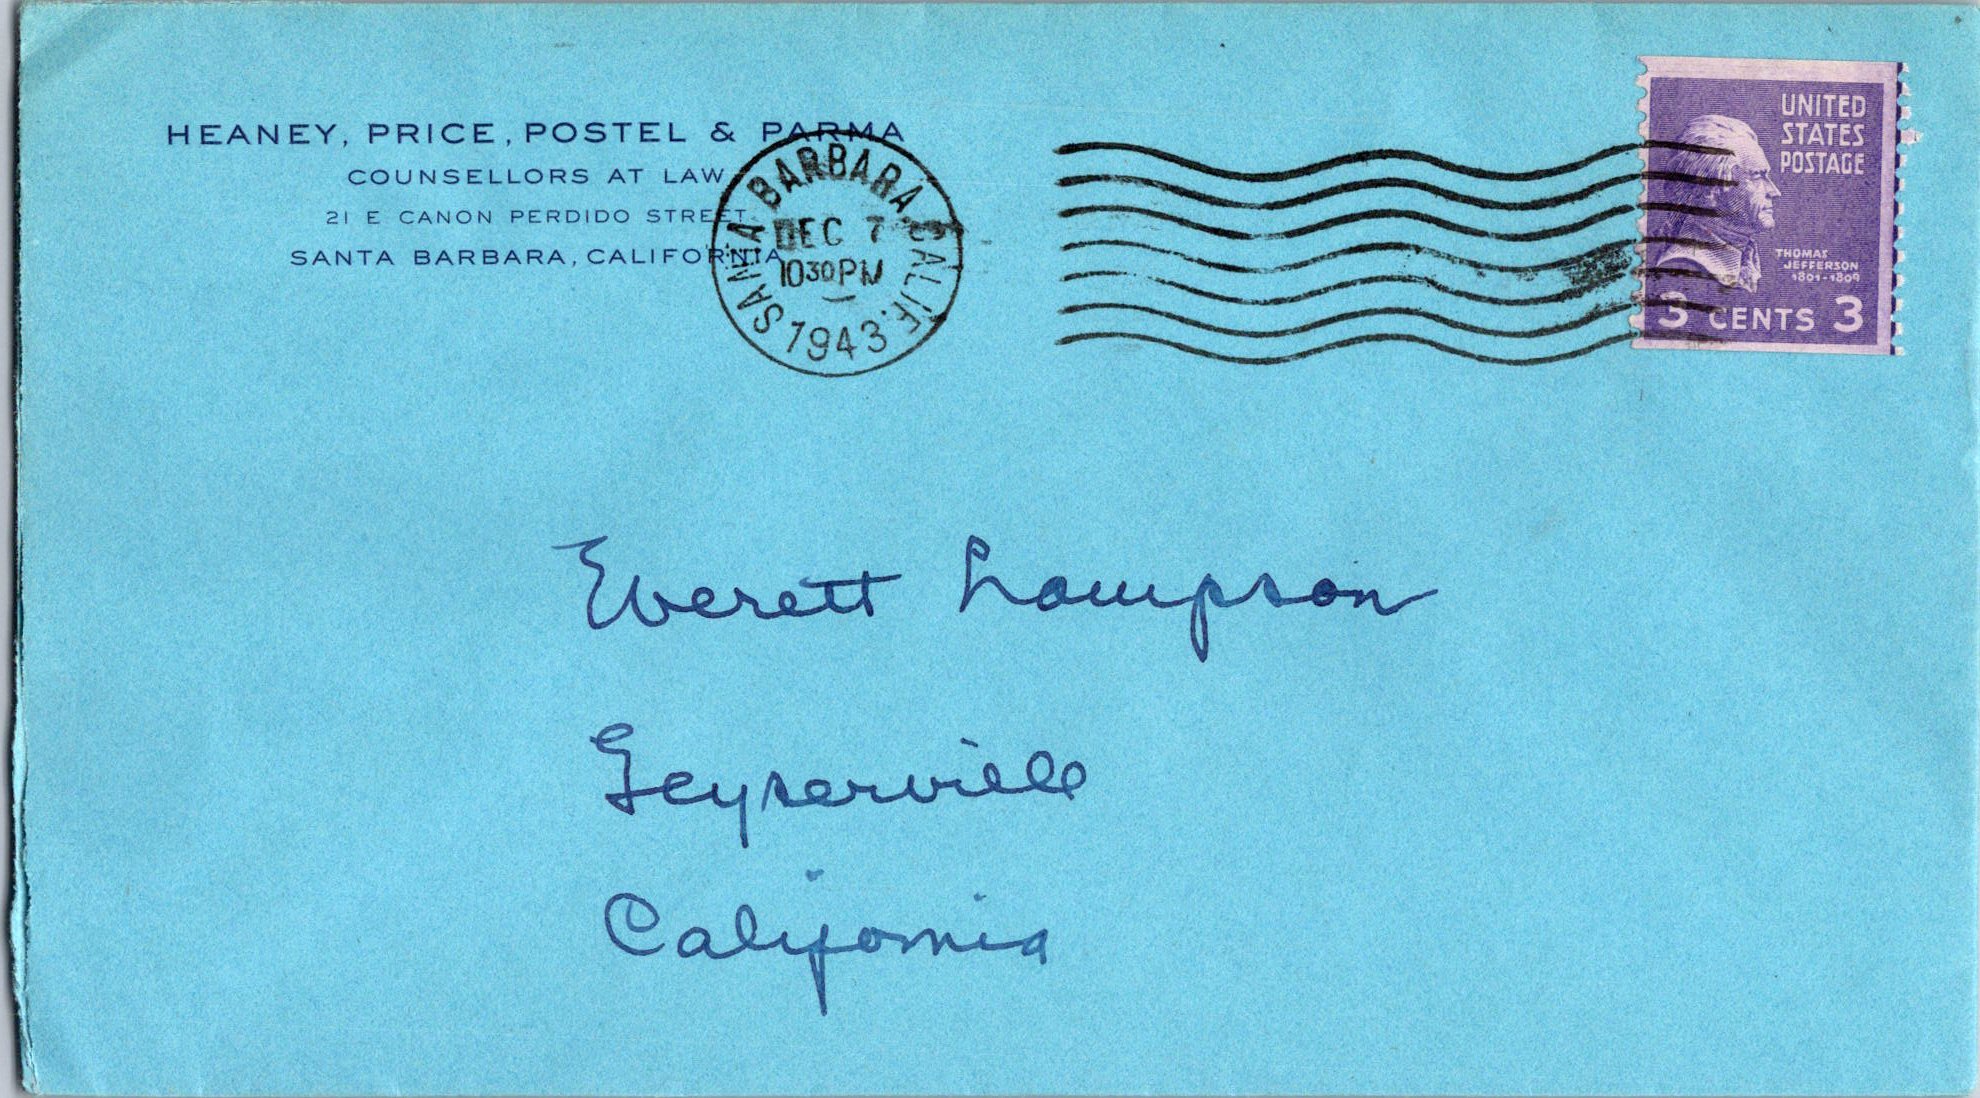 HEANEY, PRICE, POSTEL & PARMA
COUNSELLORS AT LAW
21 E CANON PERDIDO STREET
SANTA BARBARA, CALIFORNIA
SANTA BARBARA, CALIF.
DEC 7
10 30 PM
1943
UNITED
STATES
POSTAGE
THOMAS
JEFFERSON
1801-1809
3 CENTS 3
Everett Lampson
Geyserville
California